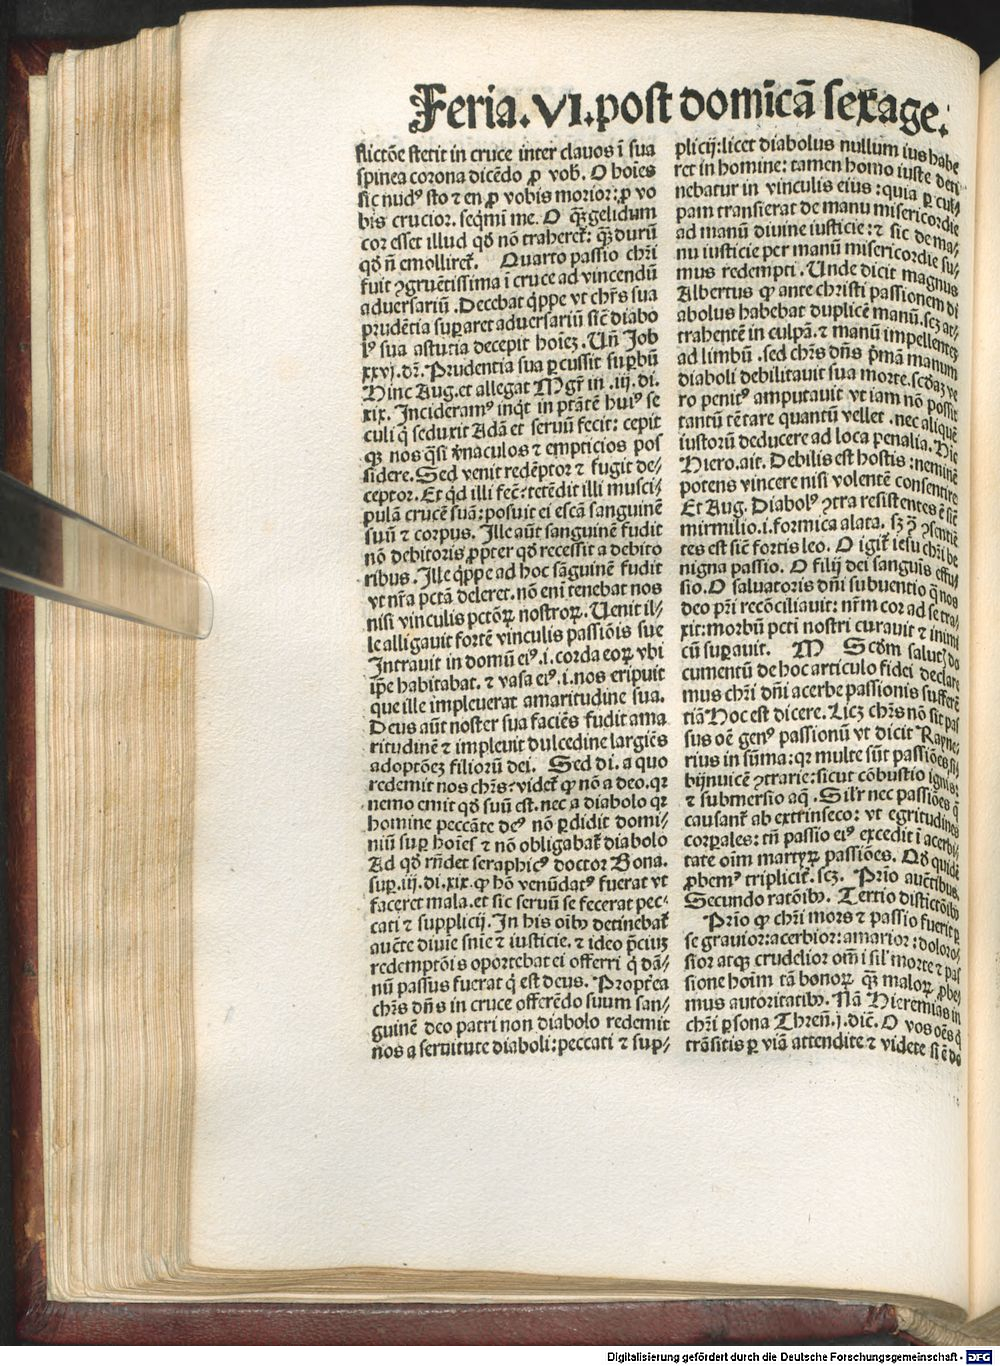 Feria.VI.post domĩcã sexage.
flictõe stetit in cruce inter clauos ĩ sua
spinea corona dicẽdo ꝓ vob̃. O hoĩes
sic nudꝰ sto ⁊ en ꝓ vobis morior: ꝓ vo
bis crucior. seq̃mi me. O q̃ꝫ gelidum
cor esset illud qđ nõ traheret̃: q̃ꝫ durũ
qđ ñ emolliret̃. Quarto passio chr̃i
fuit ꝯgruẽtissima ĩ cruce ad vincendũ
aduersariũ. Decebat q̃ppe vt chr̃s sua
prudẽtia suꝑaret aduersariũ sicẽ diabo
lꝰ sua astutia decepit hoĩeꝫ. Uñ Job
xxvj. dr̃. Prudentia sua ꝑcussit suꝑbũ
Hinc Aug. et allegat Mgr̃ in .iij. di.
xix. Incideramꝰ inq̃t in ptãtẽ huiꝰ se
culi q̃ seduxit Adã et seruũ fecit: cepit
qꝫ nos q̃si v̓naculos ⁊ empticios pos
sidere. Sed venit redẽptor ⁊ fugit de⸗
ceptor. Et qd̓ illi fec̃: tetẽdit illi musci⸗
pulã crucẽ suã: posuit ei escã sanguinẽ
suũ ⁊ corpus. Ille aũt sanguinẽ fudit
nõ debitoris ꝓpter qđ recessit a debito
ribus. Ille q̃ppe ad hoc sãguinẽ fudit
vt nr̃a pctã deleret. nõ eni tenebat nos
nisi vinculis pctõꝝ nostroꝝ. Uenit il⸗
le alligauit fortẽ vinculis passiõis sue
Intrauit in domũ eiꝰ .i. corda eoꝝ vbi
ip̃e habitabat. ⁊ vasa eiꝰ .i. nos eripuit
que ille impleuerat amaritudine sua.
Deus aũt noster sua faciẽs fudit ama
ritudinẽ ⁊ impleuit dulcedine largiẽs
adoptõeꝫ filiorũ dei. Sed di. a quo
redemit nos chr̃s: videt̃ ꝙ nõ a deo. qꝛ
nemo emit qđ suũ est. nec a diabolo qꝛ
homine peccãte deꝰ nõ ꝑdidit domi⸗
niũ suꝑ hoĩes ⁊ nõ obligabat̃ diabolo
Ad qđ rñdet seraphicꝰ doctor Bona.
suꝑ .iij. di. xix. ꝙ hõ venũdatꝰ fuerat vt
faceret mala. et sic seruũ se fecerat pec⸗
cati ⁊ supplicij. In his oĩbꝰ detinebat̃
aučte diuie s̃nie ⁊ iusticie. ⁊ ideo p̃ciuꝫ
redemptõis oportebat ei offerri q̃ dã⸗
nũ passus fuerat q̃ est deus. Propt̃ea
chr̃s dñs in cruce offerẽdo suum san⸗
guinẽ deo patri non diabolo redemit
nos a seruitute diaboli: peccati ⁊ sup⸗
plicij: licet diabolus nullum ius habe
ret in homine: tamen homo iuste deti
nebatur in vinculis eius: quia ꝑ cul⸗
pam transierat de manu misericordie
ad manũ diuine iusticie: ⁊ sic de ma⸗
nu iusticie per manũ misericordie su⸗
mus redempti. Unde dicit magnus
Albertus ꝙ ante christi passionem di
abolus habebat duplicẽ manũ. scꝫ at⸗
trahentẽ in culpã. ⁊ manũ impellenteꝫ
ad limbũ. sed chr̃s dñs p̃mã manum
diaboli debilitauit sua morte. scđaꝫ ve
ro penitꝰ amputauit vt iam nõ possit
tantũ tẽtare quantũ vellet. nec aliquẽ
iustorũ deducere ad loca penalia. Hic
Hiero. ait. Debilis est hostis: neminẽ
potens vincere nisi volentẽ consentire
Et Aug. Diabolꝰ ꝯtra resistentes ẽ sicẽ
mirmilio .i. formica alata. sꝫ ꝯ̃ ꝯsentiẽ
tes est sicẽ fortis leo. O igit̃ iesu chr̃i be
nigna passio. O filij dei sanguis effu⸗
sio. O saluatoris dñi subuentio q̃ nos
deo pr̃i recõciliauit: nr̃m cor ad se tra⸗
xit: morbũ pcti nostri curauit ⁊ inimi
cũ suꝑauit. M Scđm salutꝭ do
cumentũ de hoc articulo fidei declare
mus chr̃i dñi acerbe passionis sufferẽ
tiã Hoc est dicere. Licꝫ chr̃s nõ sit pas
sus oẽ genꝰ passionũ vt dicit Rayne⸗
rius in sũma: qꝛ multe sũt passiões si⸗
bijnuicẽ ꝯtrarie: sicut cõbustio ignis:
⁊ submersio aq̃. Sil̓r nec passiões q̃
causant̃ ab extrinseco: vt egritudines
corꝑales: tñ passio eiꝰ excedit ĩ acerbi⸗
tate oĩm martyꝝ passiões. Qđ quidẽ
ꝓbemꝰ triplicit̃. scꝫ. Prĩo aučtibus.
Secundo ratõibꝰ. Tertio distictõibꝰ
Prĩo ꝙ chr̃i mors ⁊ passio fuerit ꝑ
se grauior: acerbior: amarior: doloro⸗
sior atqꝫ crudelior om̃i sil̓ morte ⁊ pas
sione hoĩm tã bonoꝝ q̃ꝫ maloꝝ ꝓbe⸗
mus autoritatibꝰ. Nã Hieremias in
chr̃i ꝑsona Threñ. j. dic̃. O vos oẽs q̃
trãsitis ꝑ viã attendite ⁊ videte si ẽ do
Digitalisierung gefördert durch die Deutsche Forschungsgemeinschaft - DFG